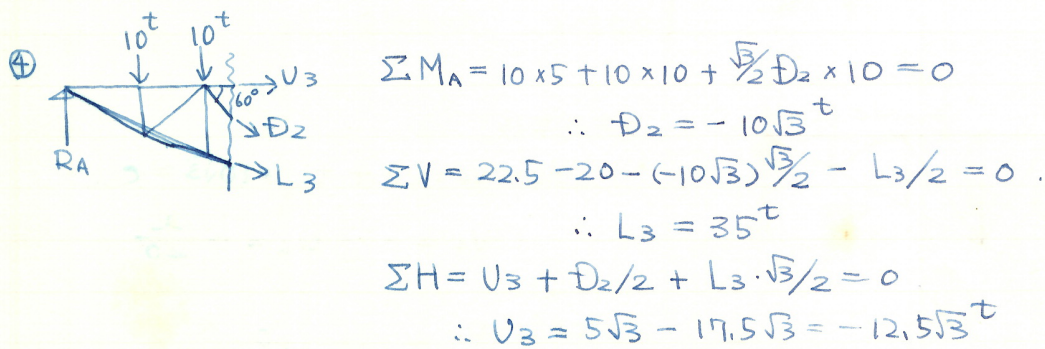 ④
10ᵗ 10ᵗ
U3
60°
D2
RA
L3
ΣMA = 10×5+10×10+√3/2 D2×10 = 0
∴ D2 = -10√3ᵗ
ΣV = 22.5-20-(-10√3)√3/2 - L3/2 = 0.
∴ L3 = 35ᵗ
ΣH = U3 + D2/2 + L3·√3/2 = 0
∴ U3 = 5√3 - 17.5√3 = -12.5√3ᵗ